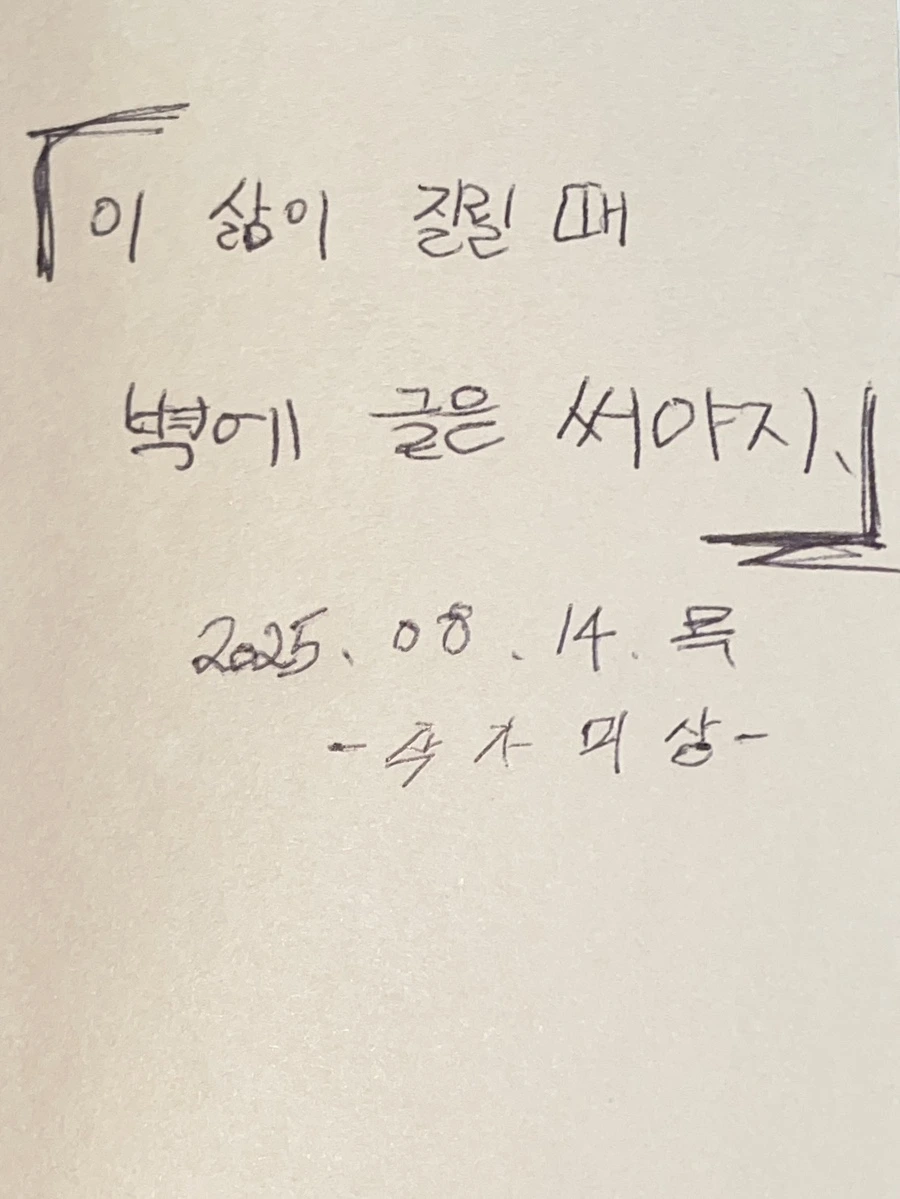 「이 삶이 질릴 때
벽에 글은 써야지.」
2025. 08. 14. 목
- 작자 미상 -